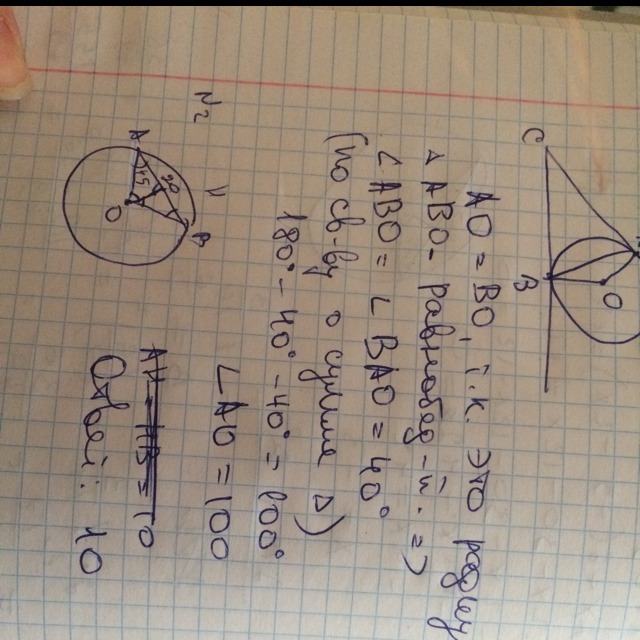 C
B
O
AO = BO, т.к. это радиу
△ ABO - равнобед-й. =>
∠ABO = ∠BAO = 40°
(по св-ву о сумме △)
180° - 40° - 40° = 100°
∠AO = 100
N2
A
B
O
Ответ: 10